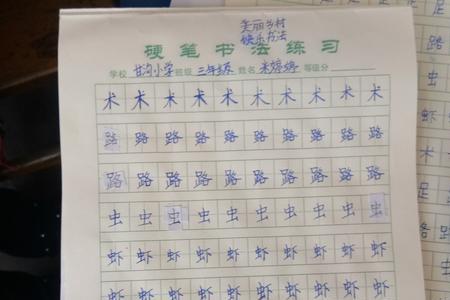 美丽乡村
快乐书法
硬笔书法练习
学校 甘沟小学 班级 三年级 姓名 婷婷 等级分
术 术 术 术 术 术 术 术 术 术
路 路 路 路 路 路 路 路 路 路
路 路 路 路 路 路 路 路 路 路
虫 虫 虫 虫 虫 虫 虫 虫 虫 虫
虾 虾 虾 虾 虾 虾 虾 虾 虾 虾
虾 虾 虾 虾 虾 虾 虾 虾 虾 虾
足
路
虫
虾
术
足
路
虫
虾